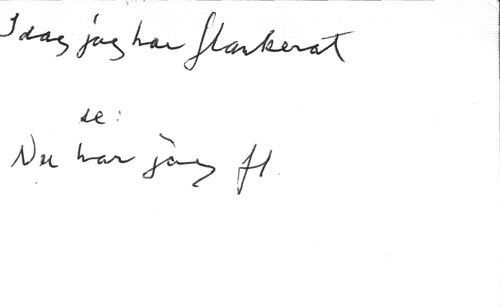 Idag jag har flankerat
se:
Nu har jag fl.